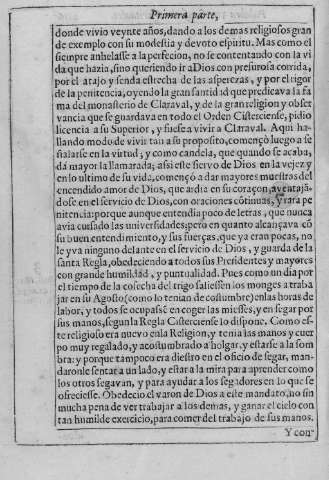 Primera parte,
donde vivio veynte años, dando a los demas religiosos gran
de exemplo con su modestia y devoto espiritu. Mas como el
siempre anhelasse a la perfecion, no se contentando con la vi
da que hazia, sino queriendo ir a Dios con presurosa corrida,
por el atajo y senda estrecha de las asperezas, y por el rigor
de la penitencia, oyendo la gran santidad que predicava la fa
ma del monasterio de Claraval, y de la gran religion y obser
vancia que se guardava en todo el Orden Cisterciense, pidio
licencia a su Superior, y fuesse a vivir a Claraval. Aqui ha-
llando modo de vivir tan a su proposito, començò luego a se
ñalarse en la virtud, y como candela, que quando se acaba,
dà mayor la llamarada; assi este siervo de Dios en la vejez y
en lo ultimo de su vida, començó a dar mayores muestras del
encendido amor de Dios, que ardia en su coraçon, aventajã-
dose en el servicio de Dios, con oraciones cõtinuas, y rara pe
nitencia: porque aunque entendia poco de letras, que nunca
avia cursado las universidades; pero en quanto alcançava cõ
su buen entendimiento, y sus fuerças, que ya eran pocas, no
le yva ninguno delante en el servicio de Dios, y guarda de la
santa Regla, obedeciendo a todos sus Presidentes y mayores
con grande humildad, y puntualidad. Pues como un dia por
el tiempo de la cosecha del trigo saliessen los monges a traba
jar en su Agosto (como lo tenian de costumbre) en las horas de
labor, y todos se ocupassẽ en coger las miesses, y en segar por
sus manos, segun la Regla Cisterciense lo dispone. Como es-
te religioso era nuevo en la Religion, y tenia las manos y cuer
po muy regalado, y acostumbrado a holgar, y estarse a la som
bra: y porque tampoco era diestro en el oficio de segar, man-
daronle sentar a un lado, y estar a la mira para aprender como
los otros segavan, y para ayudar a los segadores en lo que se
ofreciesse. Obedecio el varon de Dios a este mandato, no sin
mucha pena de ver trabajar a los demas, y ganar el cielo con
tan humilde exercicio, para comer del trabajo de sus manos.
Y con-